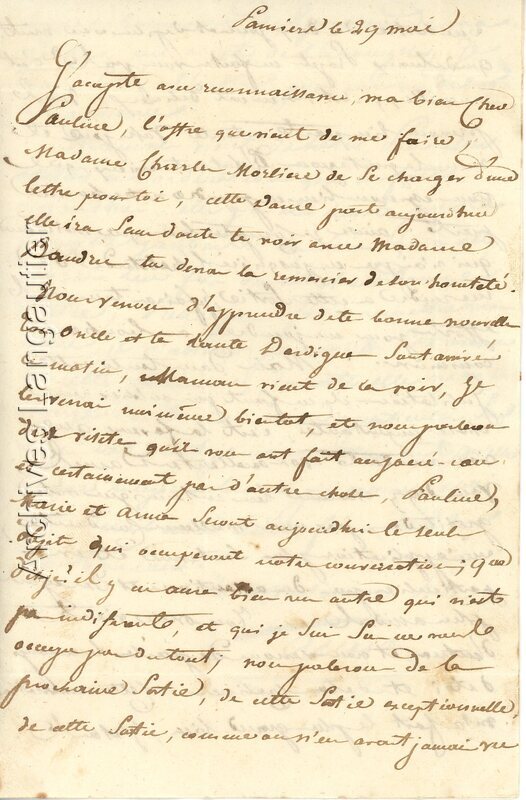 Pamiers le 29 mai
J'accepte avec reconnaissance, ma bien Chere
Pauline, l'offre que vient de me faire,
Madame Charles Morliere de se charger d'une
lettre pour toi, cette Dame part aujourd'hui
elle ira Sans doute te voir avec Madame
tu devra la remercier de son honneteté.
Nous venons d'apprendre de te bonne nouvelle
Oncle et te tante Dardigue Sont arrivé
matin, Maman vient de la voir, Je
les verrai moi même bientot, et nous parlerons
de visite qu'il vous ont fait au Sacré-cœur
et certainement pas d'autre chose, Pauline,
Marie et Anna Seront aujourd'hui le Seul
objet qui occuperont notre conversation; que
dis-je! il y en aura bien un autre qui n'est
pas indiferente, et qui je Suis Sur ne vous
occupe pas du tout; nous parlerons de la
prochaine Sortie, de cette Sortie exceptionnelle
de cette Sortie, comme on n'en avait jamais vue
Archives Langautier